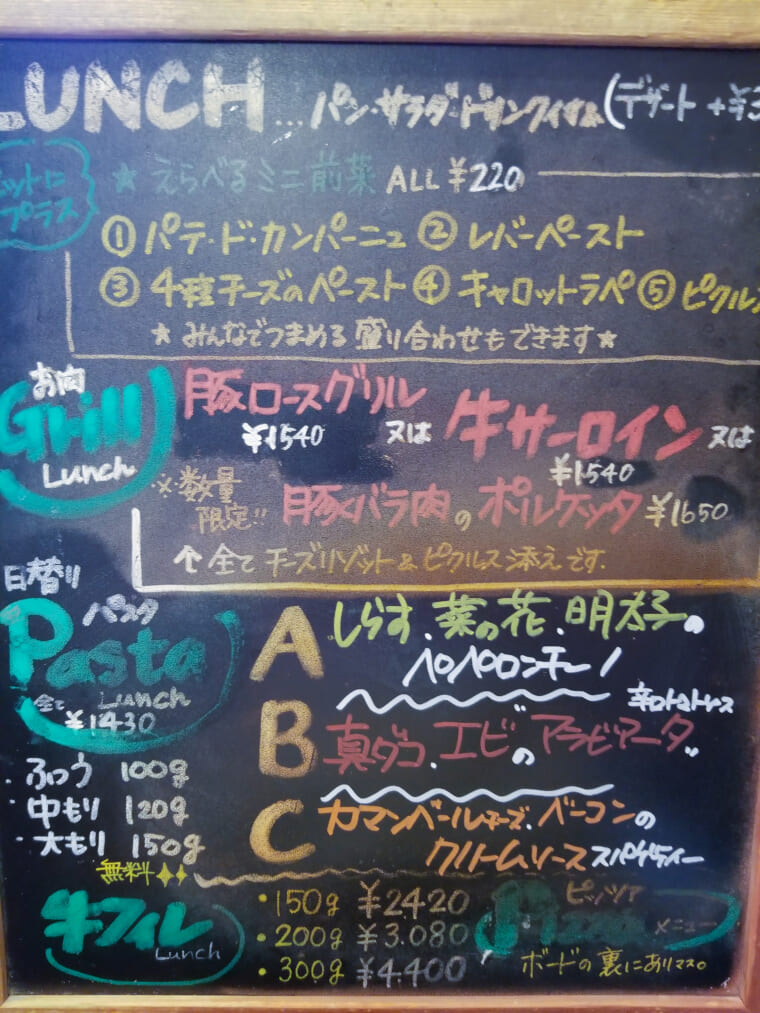 LUNCH...パン・サラダ・ドリンク付き(デザート +¥3
セットに
プラス
★えらべるミニ前菜 ALL ¥220
①パテ・ド・カンパーニュ ②レバーペースト
③4種チーズのペースト ④キャロットラペ ⑤ピクルス
★みんなでつまめる盛り合わせもできます★
お肉
Grill
Lunch
豚ロースグリル
¥1540
又は
牛サーロイン
¥1540
又は
※数量
限定!!
豚バラ肉のポルケッタ ¥1650
↑全てチーズリゾット&ピクルス添えです.
日替り
パスタ
Pasta
全て Lunch
¥1430
・ふつう 100g
・中もり 120g
・大もり 150g
無料
A しらす、菜の花、明太子の
ペペロンチーノ
辛口トマトソース
B 真ダコ、エビのアラビアータ
C カマンベールチーズ、ベーコンの
クリームソーススパゲティー
牛フィレ
Lunch
・150g ¥2420
・200g ¥3.080
・300g ¥4.400
ピッツァ
Pizza メニュー
ボードの裏にありマス。